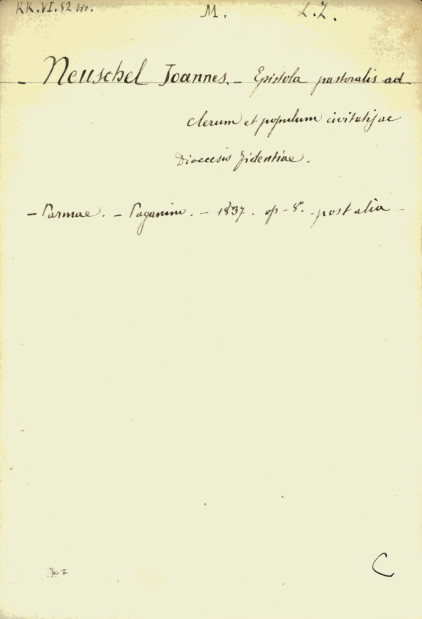 KK.VI.52 M. L.L.
- Neuschel Joannes. - Epistola pastoralis ad
clerum et populum civitatis ac
Dioecesis Fidentiae.
- Parmae. - Paganini. - 1837. op - 8°. - post alia -
C